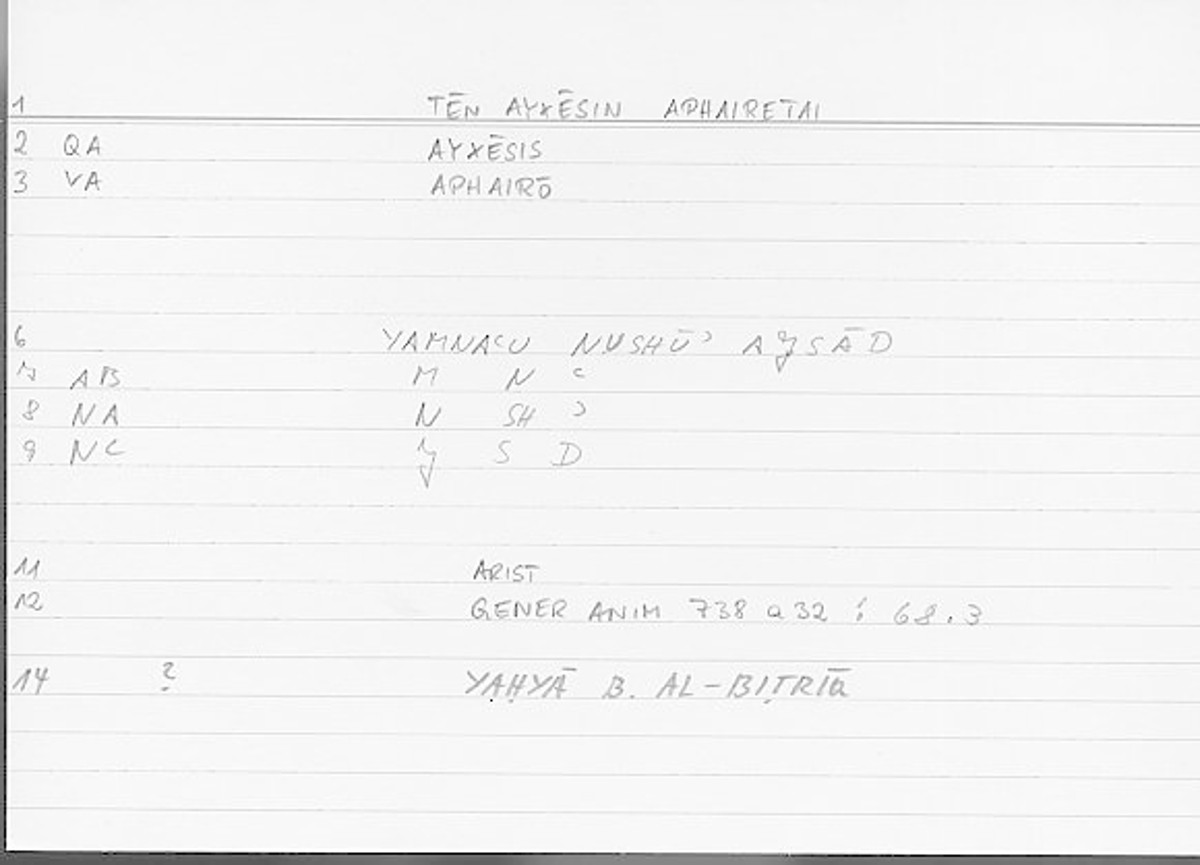 1 TĒN AYXĒSIN APHAIRETAI
2 QA AYXĒSIS
3 VA APHAIRŌ
6 YAMNAʿU NUSHŪʾ AǧSĀD
7 AB M N ʿ
8 NA N SH ʾ
9 NC ǧ S D
11 ARIST
12 GENER ANIM 738 a 32 ; 68.3
14 ? YAḤYĀ B. AL-BIṬRĪQ